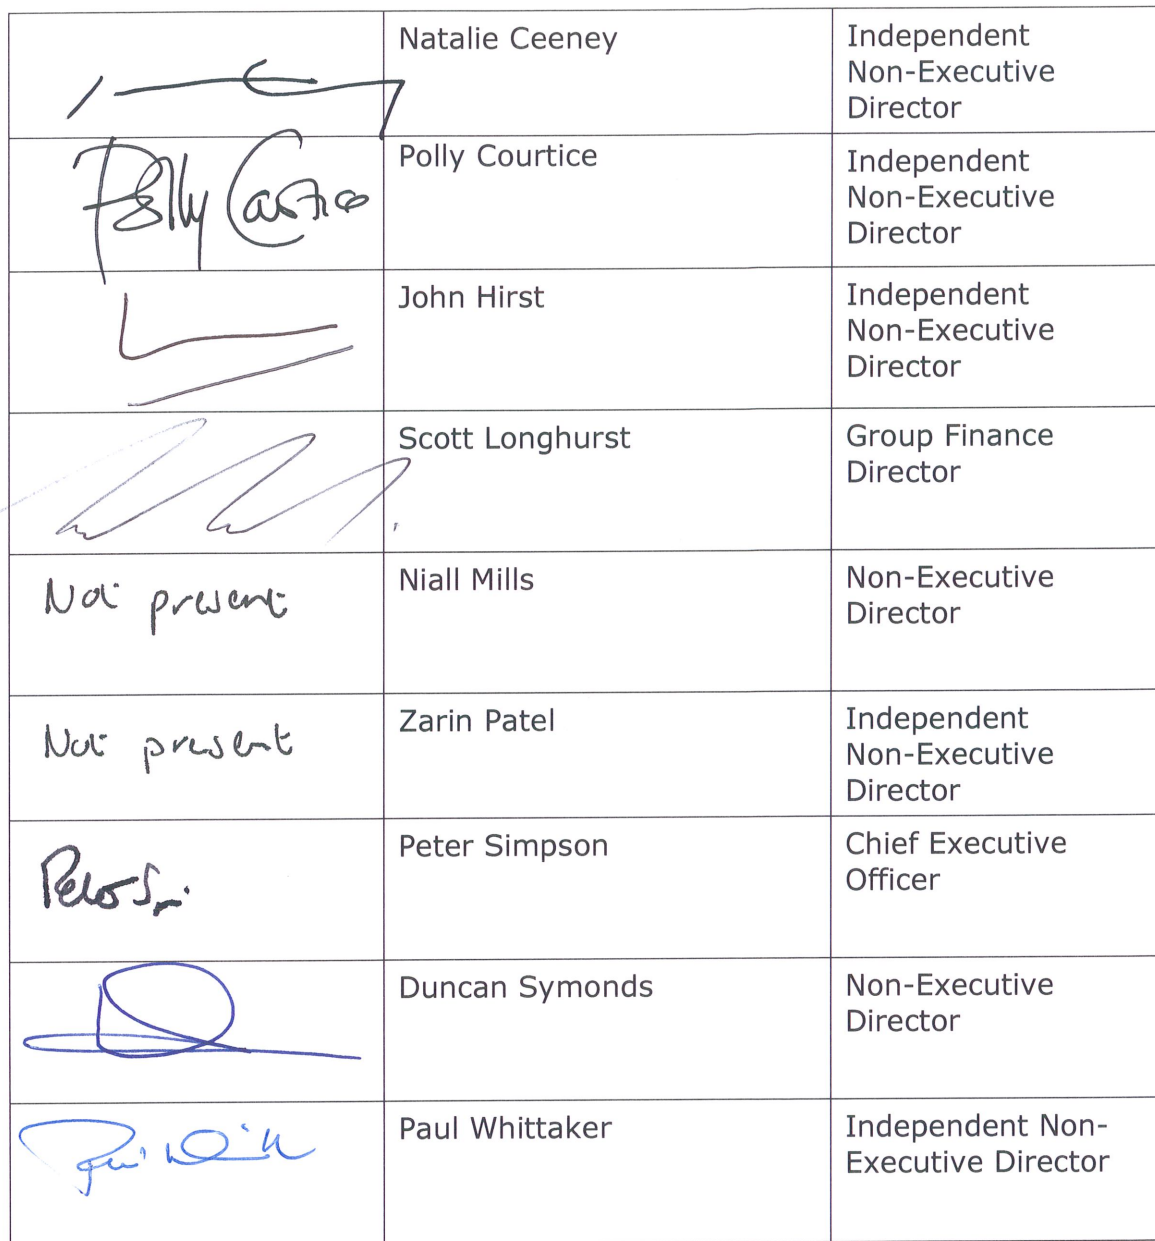 Natalie Ceeney
Independent
Non-Executive
Director
Polly Courtice
Polly Courtice
Independent
Non-Executive
Director
John Hirst
Independent
Non-Executive
Director
Scott Longhurst
Group Finance
Director
Not present
Niall Mills
Non-Executive
Director
Not present
Zarin Patel
Independent
Non-Executive
Director
Peter Simpson
Chief Executive
Officer
Duncan Symonds
Non-Executive
Director
Paul Whittaker
Independent Non-
Executive Director